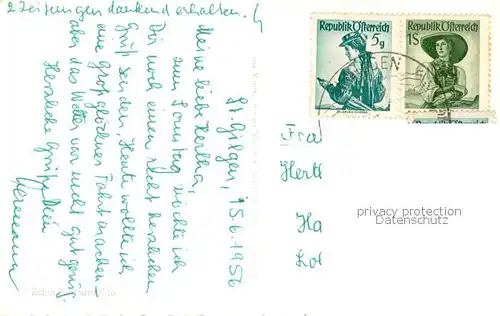 2 Zeitungen dankend erhalten.
St. Gilgen, 15.6.1956
Meine liebe Hertha,
zum Sonntag möchte ich
Dir noch einen recht herzlichen
Gruß senden. Heute wollte ich
eine Großglockner Fahrt machen,
aber das Wetter war nicht gut genug.
Herzliche Grüße Dein
Hermann
Republik Österreich
5g
Republik Österreich
1S
GEN
Hertl
Ha
privacy protection
Datenschutz